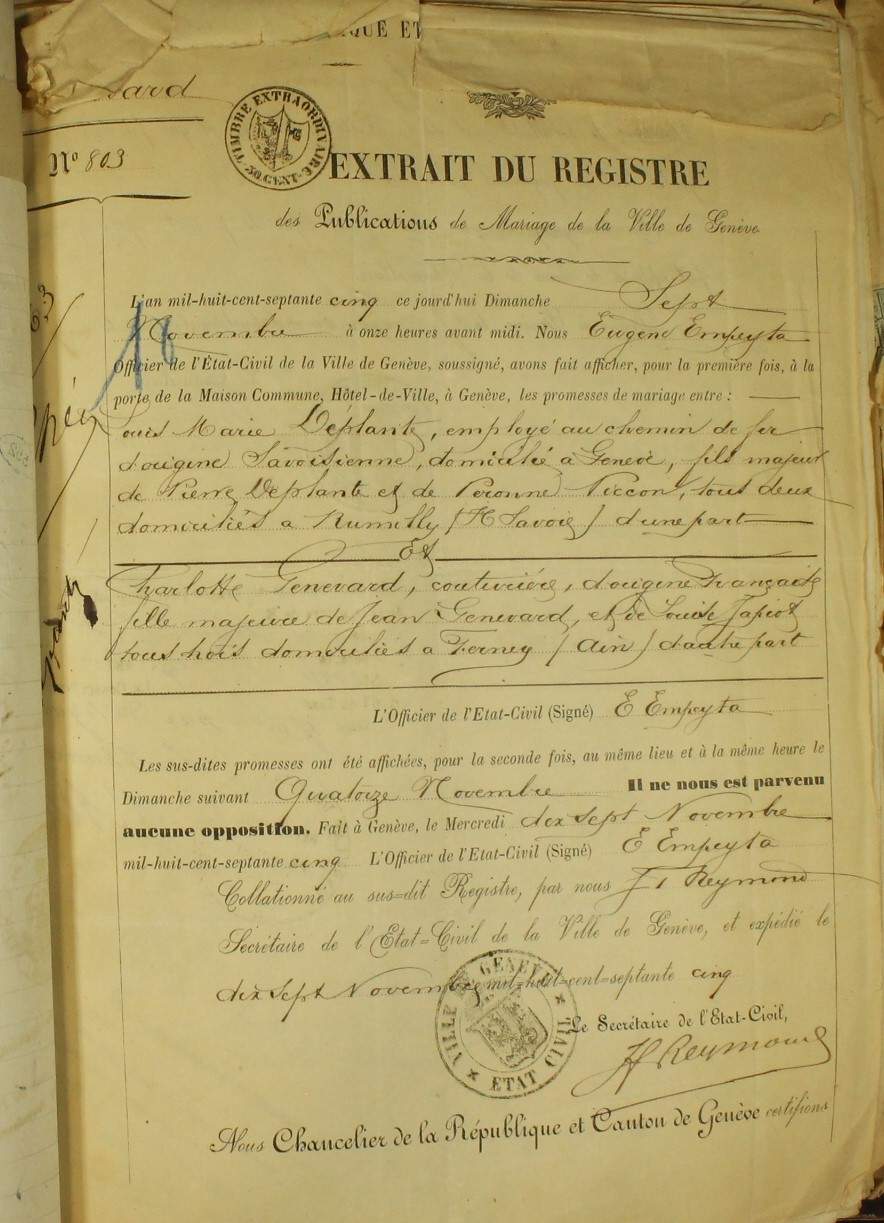 QUE ET
TIMBRE EXTRAORDINAIRE
50 CENT.
No 803
EXTRAIT DU REGISTRE
des Publications de Mariage de la Ville de Genève
L'an mil-huit-cent-septante cinq ce jourd'hui Dimanche Sept
Novembre à onze heures avant midi. Nous Eugène Empeyta
Officier de l'État-Civil de la Ville de Genève, soussigné, avons fait afficher, pour la première fois, à la
porte de la Maison Commune, Hôtel-de-Ville, à Genève, les promesses de mariage entre :
Louis Marie Déplante, employé au chemin de fer
d'origine Savoisienne, domicilié à Genève, fils majeur
de Pierre Déplante et de Péronne, tous deux
domiciliés à Rumilly (Hte Savoie) d'une part
Et
Charlotte Genevard, couturière, d'origine Française
fille majeure de Jean Genevard, et de Louise
tous trois domiciliés à Ferney (Ain) d'autre part
L'Officier de l'Etat-Civil (Signé) E Empeyta
Les sus-dites promesses ont été affichées, pour la seconde fois, au même lieu et à la même heure le
Dimanche suivant Quatorze Novembre Il ne nous est parvenu
aucune opposition. Fait à Genève, le Mercredi dix sept Novembre
mil-huit-cent-septante cinq L'Officier de l'Etat-Civil (Signé) E Empeyta
Collationné au sus=dit Registre, par nous Reymond
Secrétaire de l'Etat=Civil de la Ville de Genève, et expédié le
dix sept Novembre mil=huit=cent=septante cinq
VILLE DE GENEVE
ETAT CIVIL
Le Secrétaire de l'Etat-Civil,
Reymond
Nous Chancelier de la République et Canton de Genève certifions